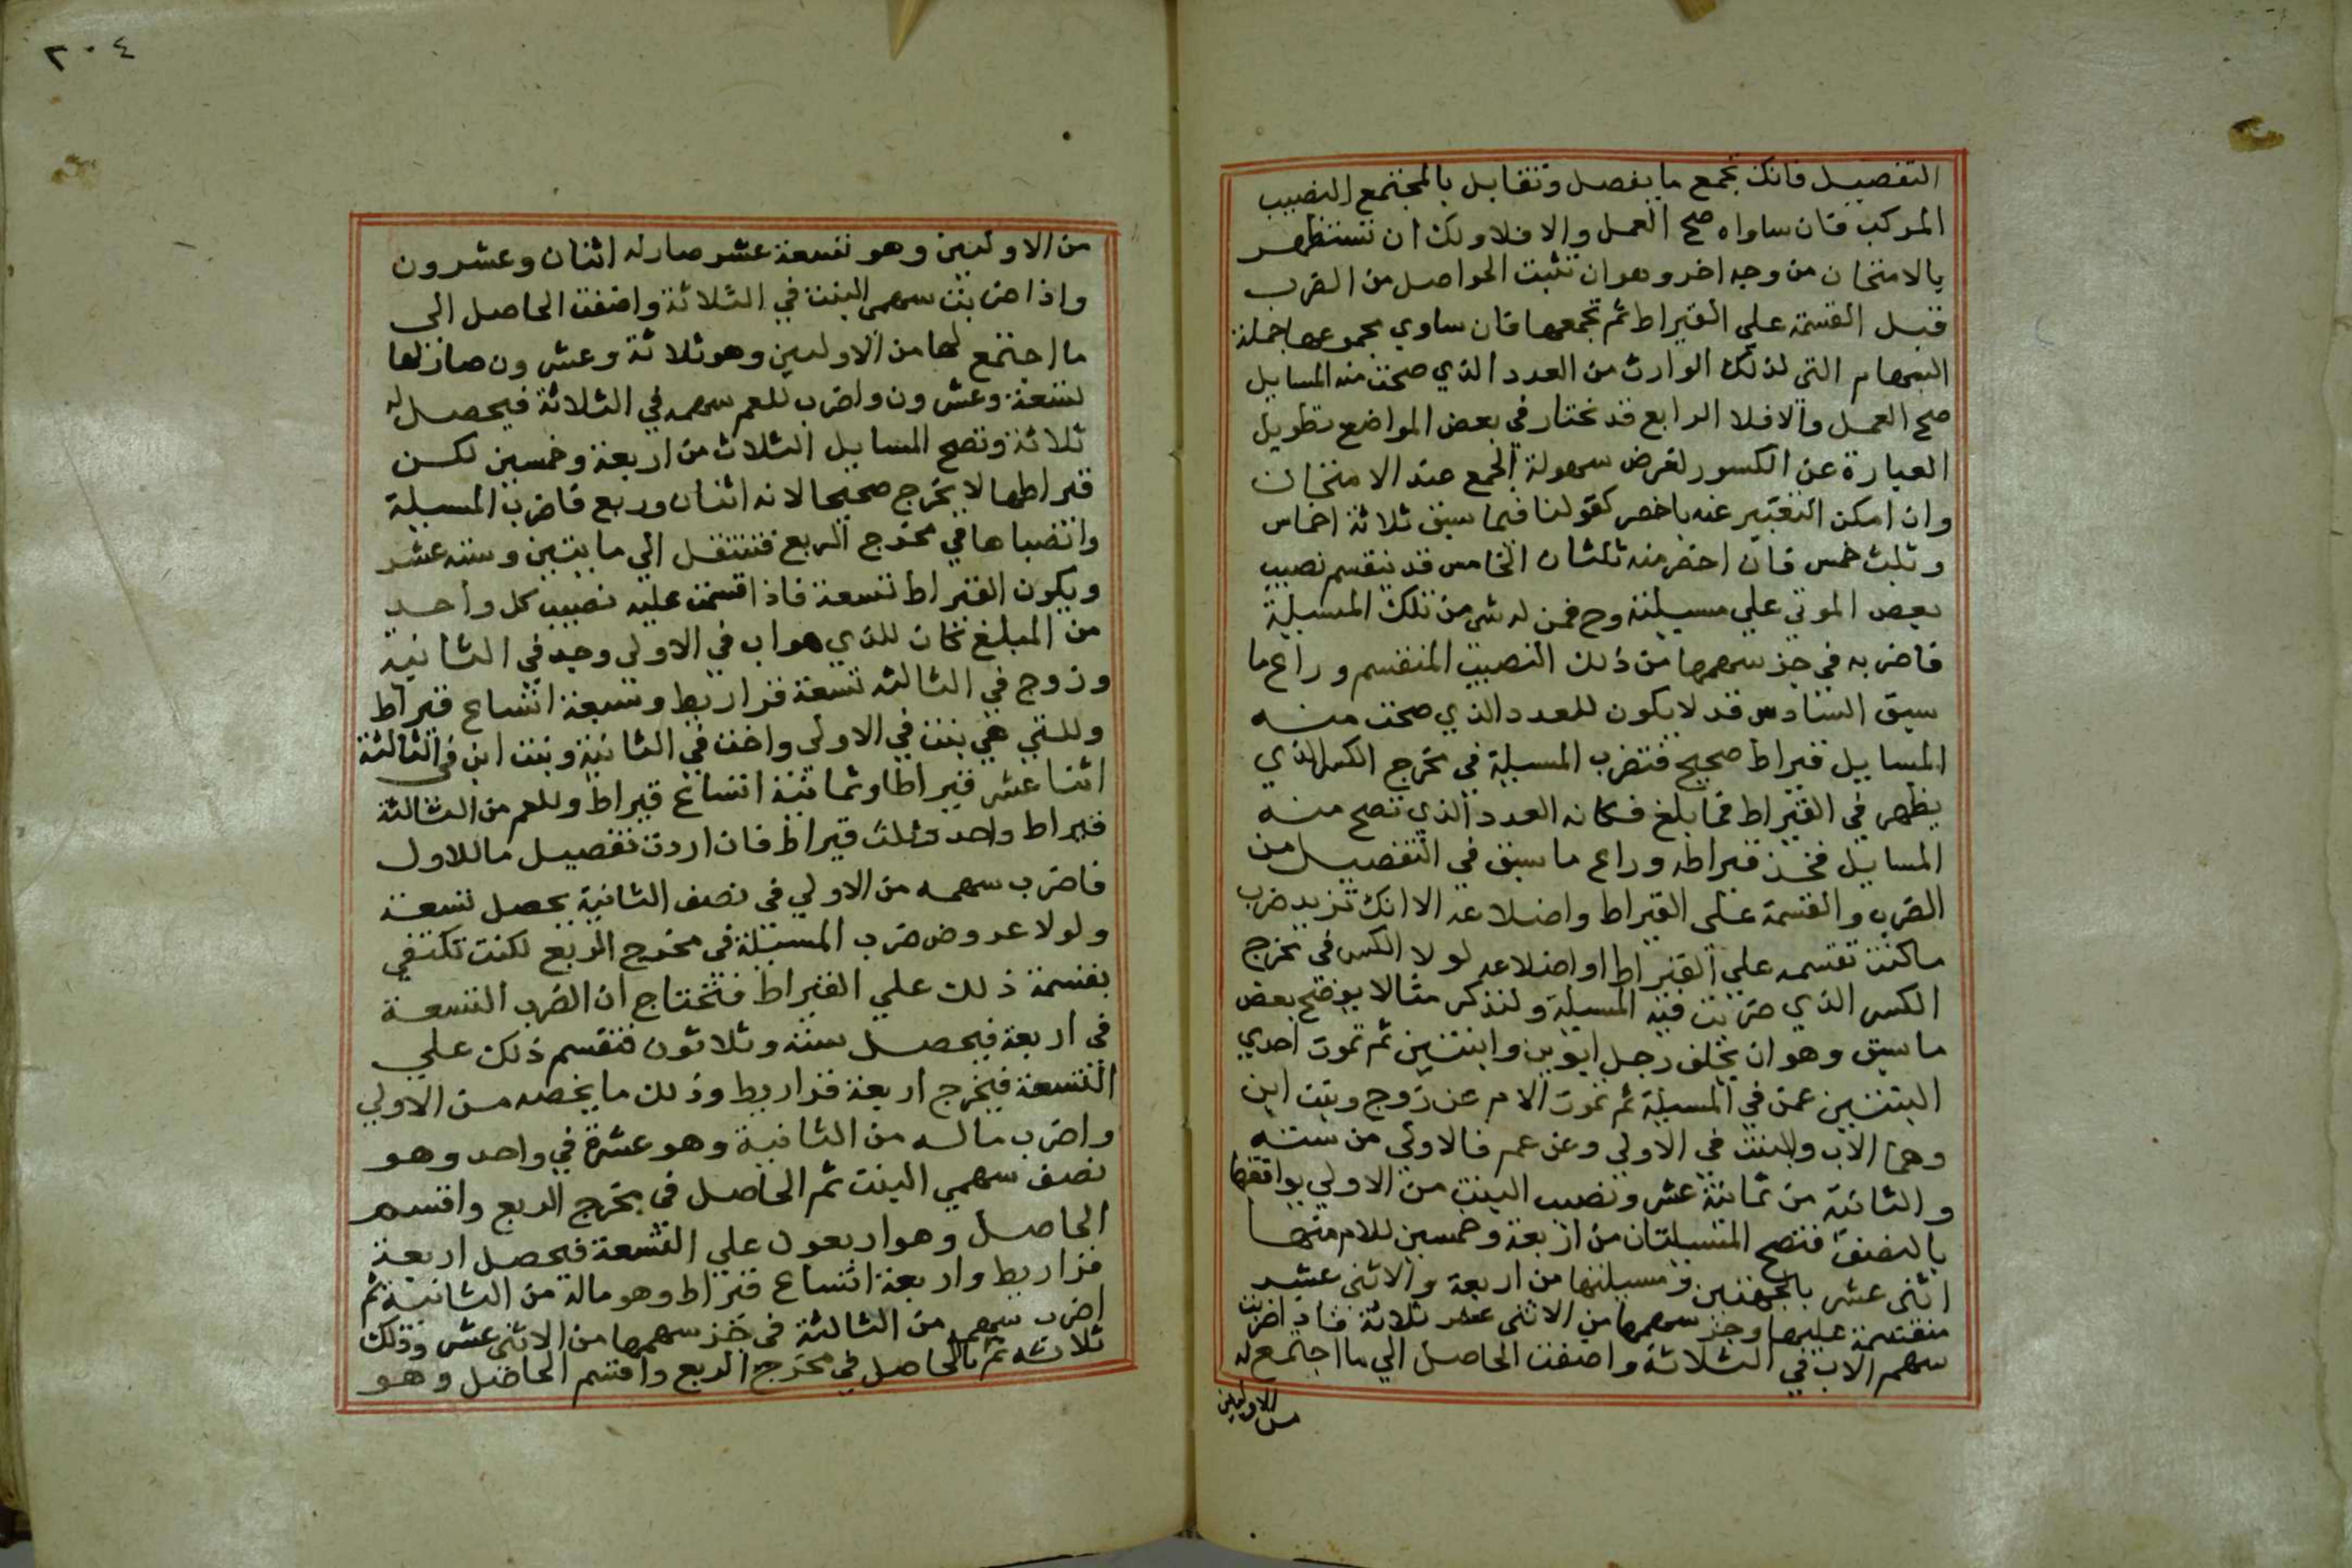 التفصيل فانك تجمع ما يفصل وتقابل بالمجتمع النصيب
المركب فان ساواه صح العمل والا فلا ولك ان تستظهر
بالامتحان من وجه اخر وهو ان تثبت الحواصل من الضرب
قبل القسمة علي القيراط ثم تجمعها فان ساوي مجموعها جملة
السهام التي لذلك الوارث من العدد الذي صحت منه المسايل
صح العمل والا فلا الرابع قد نختار في بعض المواضع تطويل
العبارة عن الكسور لغرض سهولة الجمع عند الامتحان
وان امكن التعبير عنه باخصر كقولنا فيما سبق ثلاثة اخماس
وثلث خمس فان اخصر منه ثلثان الخامس قد ينقسم نصيب
بعض الموتي علي مسيلته وح فمن له شي من تلك المسيلة
فاضربه في جز سهمها من ذلك النصيب المنقسم وراع ما
سبق السادس قد لا يكون للعدد الذي صحت منه
المسايل قيراط صحيح فتضرب المسيلة في مخرج الكسر الذي
يظهر في القيراط فما بلغ فكانه العدد الذي تصح منه
المسايل فخذ قيراطه وراع ما سبق في التفصيل من
الضرب والقسمة علي القيراط واضلاعه الا انك تزيد ضرب
ما كنت تقسمه علي القيراط او اضلاعه لولا الكسر في مخرج
الكسر الذي ضربت فيه المسيلة ولنذكر مثالا يوضح بعض
ما سبق وهو ان يخلف رجل ابوين وابنتين ثم تموت احدي
البنتين عمن في المسيلة ثم تموت الام عن زوج وبنت ابن
وهما الاب والبنت في الاولي وعن عم فالاولي من ستة
والثانية من ثمانية عشر ونصيب البنت من الاولي يوافقها
بالنصف فتصح المسيلتان من اربعة وخمسين للام منها
اثني عشر بالجهتين ومسيلتها من اربعة والاثني عشر
منقسمة عليها وجز سهمها من الاثني عشر ثلاثة فاذا ضربت
سهم الاب في الثلاثة واضفت الحاصل الي ما اجتمع له
من الاوليين
٣٠٤
من الاوليين وهو تسعة عشر صار له اثنان وعشرون
واذا ضربت سهمي البنت في الثلاثة واضفت الحاصل الي
ما اجتمع لها من الاوليين وهو ثلاثة وعشرون صار لها
تسعة وعشرون واضرب للعم سهمه في الثلاثة فيحصل له
ثلاثة وتصح المسايل الثلاث من اربعة وخمسين لكن
قيراطها لا يخرج صحيحا لانه اثنان وربع فاضرب المسيلة
وانصباها في مخرج الربع فتنتقل الي مايتين وستة عشر
ويكون القيراط تسعة فاذا قسمت عليه نصيب كل واحد
من المبلغ كان للذي هو اب في الاولي وجد في الثانية
وزوج في الثالثه تسعة قراريط وسبعة اتساع قيراط
وللتي هي بنت في الاولي واخت في الثانية وبنت ابن في الثالثة
اثنا عشر قيراطا وثمانية اتساع قيراط وللعم من الثالثة
قيراط واحد وثلث قيراط فان اردت تفصيل ما للاول
فاضرب سهمه من الاولي في نصف الثانية يحصل تسعة
ولولا عروض ضرب المسيلة في مخرج الربع لكنت تكتفي
بقسمة ذلك علي القيراط فتحتاج ان الضرب التسعة
في اربعة فيحصل ستة وثلاثون فتقسم ذلك علي
التسعة فيخرج اربعة قراريط وذلك ما يخصه من الاولي
واضرب ماله من الثانية وهو عشرة في واحد وهو
نصف سهمي البنت ثم الحاصل في مخرج الربع واقسم
الحاصل وهو اربعون علي التسعة فيحصل اربعة
قراريط واربعة اتساع قيراط وهو ماله من الثانية ثم
اضرب سهمه من الثالثة في جز سهمها من الاثني عشر وذلك
ثلاثة ثم بالحاصل في مخرج الربع واقسم الحاصل وهو